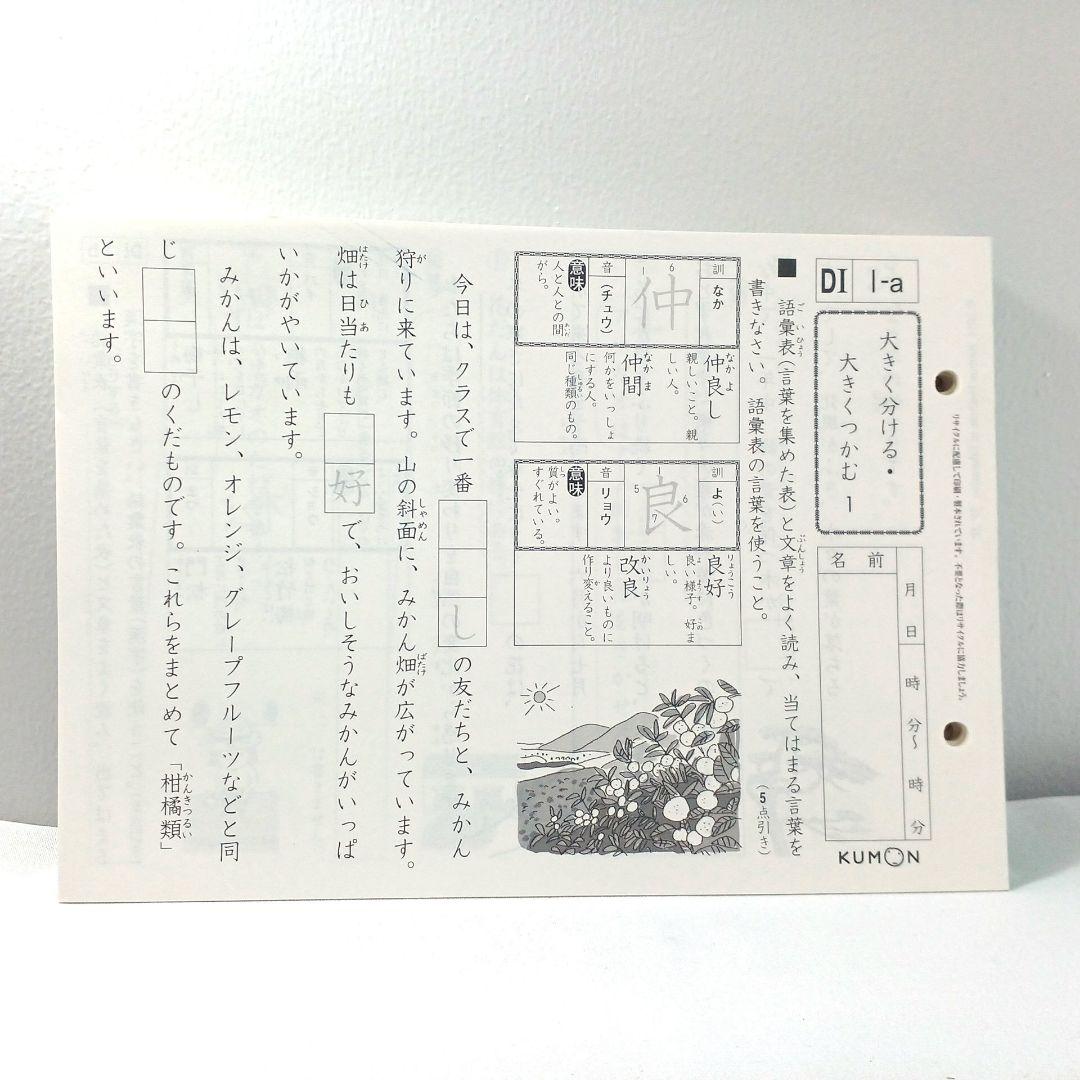 DI 1-a
大きく分ける・
大きくつかむ 1
月 日 時 分〜 時 分
名前
KUMON
リサイクルに配慮して印刷・製本されています。不要となった際はリサイクルに協力しましょう。
■ 語彙表(言葉を集めた表)と文章をよく読み、当てはまる言葉を
書きなさい。語彙表の言葉を使うこと。
(5点引き)
訓 なか
仲
1 6
音 (チュウ)
意味
人と人との間
がら。
仲良し
親しいこと。親
しい人。
仲間
何かをいっしょ
にする人。
同じ種類のもの。
訓 よ(い)
良
1 5 6 7
音 リョウ
意味
質がよい。
すぐれている。
良好
良い様子。好ま
しい。
改良
より良いものに
作り変えること。
今日は、クラスで一番 し の友だちと、みかん
狩りに来ています。山の斜面に、みかん畑が広がっています。
畑は日当たりも 好 で、おいしそうなみかんがいっぱ
いかがやいています。
みかんは、レモン、オレンジ、グレープフルーツなどと同
じ のくだものです。これらをまとめて「柑橘類」
といいます。